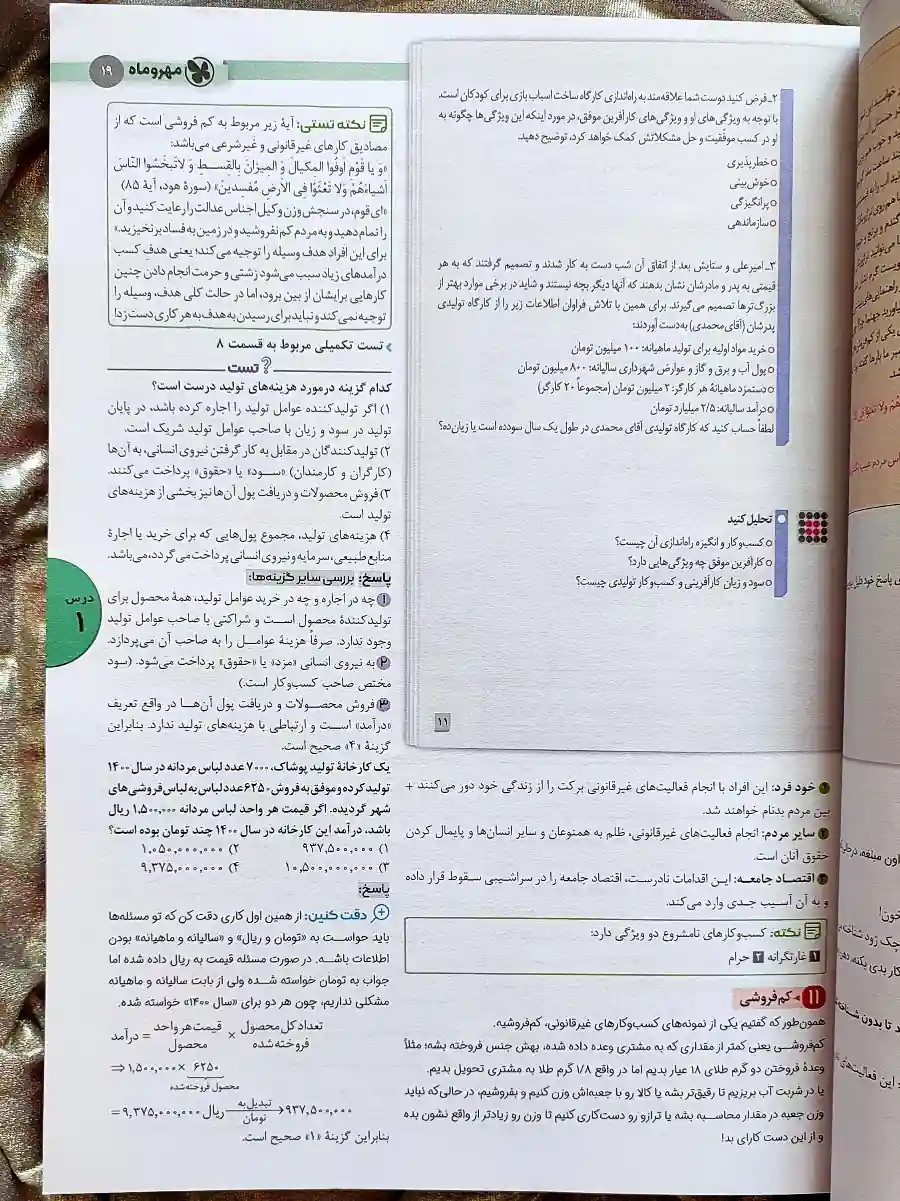 مهروماه ۱۹
۲ـ فرض کنید دوست شما علاقه‌مند به راه‌اندازی کارگاه ساخت اسباب بازی برای کودکان است.
با توجه به ویژگی‌های او و ویژگی‌های کارآفرین موفق، در مورد اینکه این ویژگی‌ها چگونه به
او در کسب موفّقیت و حل مشکلاتش کمک خواهد کرد، توضیح دهید.
خطرپذیری
خوش‌بینی
پرانگیزگی
سازماندهی
۳ـ امیرعلی و ستایش بعد از اتفاق آن شب دست به کار شدند و تصمیم گرفتند که به هر
قیمتی به پدر و مادرشان نشان بدهند که آنها دیگر بچه نیستند و شاید در برخی موارد بهتر از
بزرگ‌ترها تصمیم می‌گیرند. برای همین با تلاش فراوان اطلاعات زیر را از کارگاه تولیدی
پدرشان (آقای محمدی) به‌دست آوردند:
خرید مواد اولیه برای تولید ماهیانه: ۱۰۰ میلیون تومان
پول آب و برق و گاز و عوارض شهرداری سالیانه: ۸۰۰ میلیون تومان
دستمزد ماهیانهٔ هر کارگر: ۲ میلیون تومان (مجموعاً ۲۰ کارگر)
درآمد سالیانه: ۲/۵ میلیارد تومان
لطفاً حساب کنید که کارگاه تولیدی آقای محمدی در طول یک سال سودده است یا زیان‌ده؟
تحلیل کنید
کسب‌وکار و انگیزه راه‌اندازی آن چیست؟
کارآفرین موفق چه ویژگی‌هایی دارد؟
سود و زیان کارآفرینی و کسب‌وکار تولیدی چیست؟
۱۱
۱ خود فرد: این افراد با انجام فعالیت‌های غیرقانونی برکت را از زندگی خود دور می‌کنند +
بین مردم بدنام خواهند شد.
۲ سایر مردم: انجام فعالیت‌های غیرقانونی، ظلم به همنوعان و سایر انسان‌ها و پایمال کردن
حقوق آنان است.
۳ اقتصاد جامعه: این اقدامات نادرست، اقتصاد جامعه را در سراشیبی سقوط قرار داده
و به آن آسیب جدی وارد می‌کند.
نکته: کسب‌وکارهای نامشروع دو ویژگی دارد:
۱ غارتگرانه ۲ حرام
۱۱ کم‌فروشی
همون‌طور که گفتیم یکی از نمونه‌های کسب‌وکارهای غیرقانونی، کم‌فروشیه.
کم‌فروشی یعنی کمتر از مقداری که به مشتری وعده داده شده، بهش جنس فروخته بشه؛ مثلاً
وعدهٔ فروختن دو گرم طلای ۱۸ عیار بدیم اما در واقع ۱/۸ گرم طلا به مشتری تحویل بدیم.
یا در شربت آب بریزیم تا رقیق‌تر بشه یا کالا رو با جعبه‌اش وزن کنیم و بفروشیم، در حالی‌که نباید
وزن جعبه در مقدار محاسبه بشه یا ترازو رو دست‌کاری کنیم تا وزن رو زیادتر از واقع نشون بده
و از این دست کارای بد!
نکته تستی: آیهٔ زیر مربوط به کم فروشی است که از
مصادیق کارهای غیرقانونی و غیرشرعی می‌باشد:
«وَ یا قَوْمِ اَوفُوا المِکیالَ وَ المیزانَ بِالقِسطِ وَ لاتَبخَسُوا النّاسَ
اَشیاءَهُمْ وَلا تَعْثَوْا فِی الاَرضِ مُفسدینَ» (سورهٔ هود، آیهٔ ۸۵)
«ای قوم، در سنجش وزن و کیل اجناس عدالت را رعایت کنید و آن
را تمام دهید و به مردم کم نفروشید و در زمین به فساد برنخیزید.»
برای این افراد هدف وسیله را توجیه می‌کند؛ یعنی هدفِ کسب
درآمدهای زیاد سبب می‌شود زشتی و حرمت انجام دادن چنین
کارهایی برایشان از بین برود، اما در حالت کلی هدف، وسیله را
توجیه نمی‌کند و نباید برای رسیدن به هدف به هر کاری دست زد!
تست تکمیلی مربوط به قسمت ۸
تست
کدام گزینه درمورد هزینه‌های تولید درست است؟
۱) اگر تولیدکننده عوامل تولید را اجاره کرده باشد، در پایان
تولید در سود و زیان با صاحب عوامل تولید شریک است.
۲) تولیدکنندگان در مقابل به کار گرفتن نیروی انسانی، به آن‌ها
(کارگران و کارمندان) «سود» یا «حقوق» پرداخت می‌کنند.
۳) فروش محصولات و دریافت پول آن‌ها نیز بخشی از هزینه‌های
تولید است.
۴) هزینه‌های تولید، مجموع پول‌هایی که برای خرید یا اجارهٔ
منابع طبیعی، سرمایه و نیروی انسانی پرداخت می‌گردد، می‌باشد.
پاسخ: بررسی سایر گزینه‌ها:
۱ چه در اجاره و چه در خرید عوامل تولید، همهٔ محصول برای
تولیدکنندهٔ محصول است و شراکتی با صاحب عوامل تولید
وجود ندارد. صرفاً هزینهٔ عوامل را به صاحب آن می‌پردازد.
۲ به نیروی انسانی «مزد» یا «حقوق» پرداخت می‌شود. (سود
مختص صاحب کسب‌وکار است.)
۳ فروش محصولات و دریافت پول آن‌ها در واقع تعریف
«درآمد» است و ارتباطی با هزینه‌های تولید ندارد. بنابراین
گزینهٔ «۴» صحیح است.
یک کارخانهٔ تولید پوشاک، ۷۰۰۰ عدد لباس مردانه در سال ۱۴۰۰
تولید کرده و موفق به فروش ۶۲۵۰ عدد لباس به لباس فروشی‌های
شهر گردیده. اگر قیمت هر واحد لباس مردانه ۱,۵۰۰,۰۰۰ ریال
باشد، درآمد این کارخانه در سال ۱۴۰۰ چند تومان بوده است؟
۱) ۹۳۷,۵۰۰,۰۰۰ ۲) ۱,۰۵۰,۰۰۰,۰۰۰
۳) ۱۰,۵۰۰,۰۰۰,۰۰۰ ۴) ۹,۳۷۵,۰۰۰,۰۰۰
پاسخ:
دقت کنین: از همین اول کاری دقت کن که تو مسئله‌ها
باید حواست به «تومان و ریال» و «سالیانه و ماهیانه» بودن
اطلاعات باشه. در صورت مسئله قیمت به ریال داده شده اما
جواب به تومان خواسته شده ولی از بابت سالیانه و ماهیانه
مشکلی نداریم، چون هر دو برای «سال ۱۴۰۰» خواسته شده.
تعداد کل محصول فروخته‌شده × قیمت هر واحد محصول = درآمد
⇒ ۱,۵۰۰,۰۰۰ × ۶۲۵۰
محصول فروخته‌شده
= ۹,۳۷۵,۰۰۰,۰۰۰ ریال تبدیل به تومان → ۹۳۷,۵۰۰,۰۰۰
بنابراین گزینهٔ «۱» صحیح است.
درس
۱